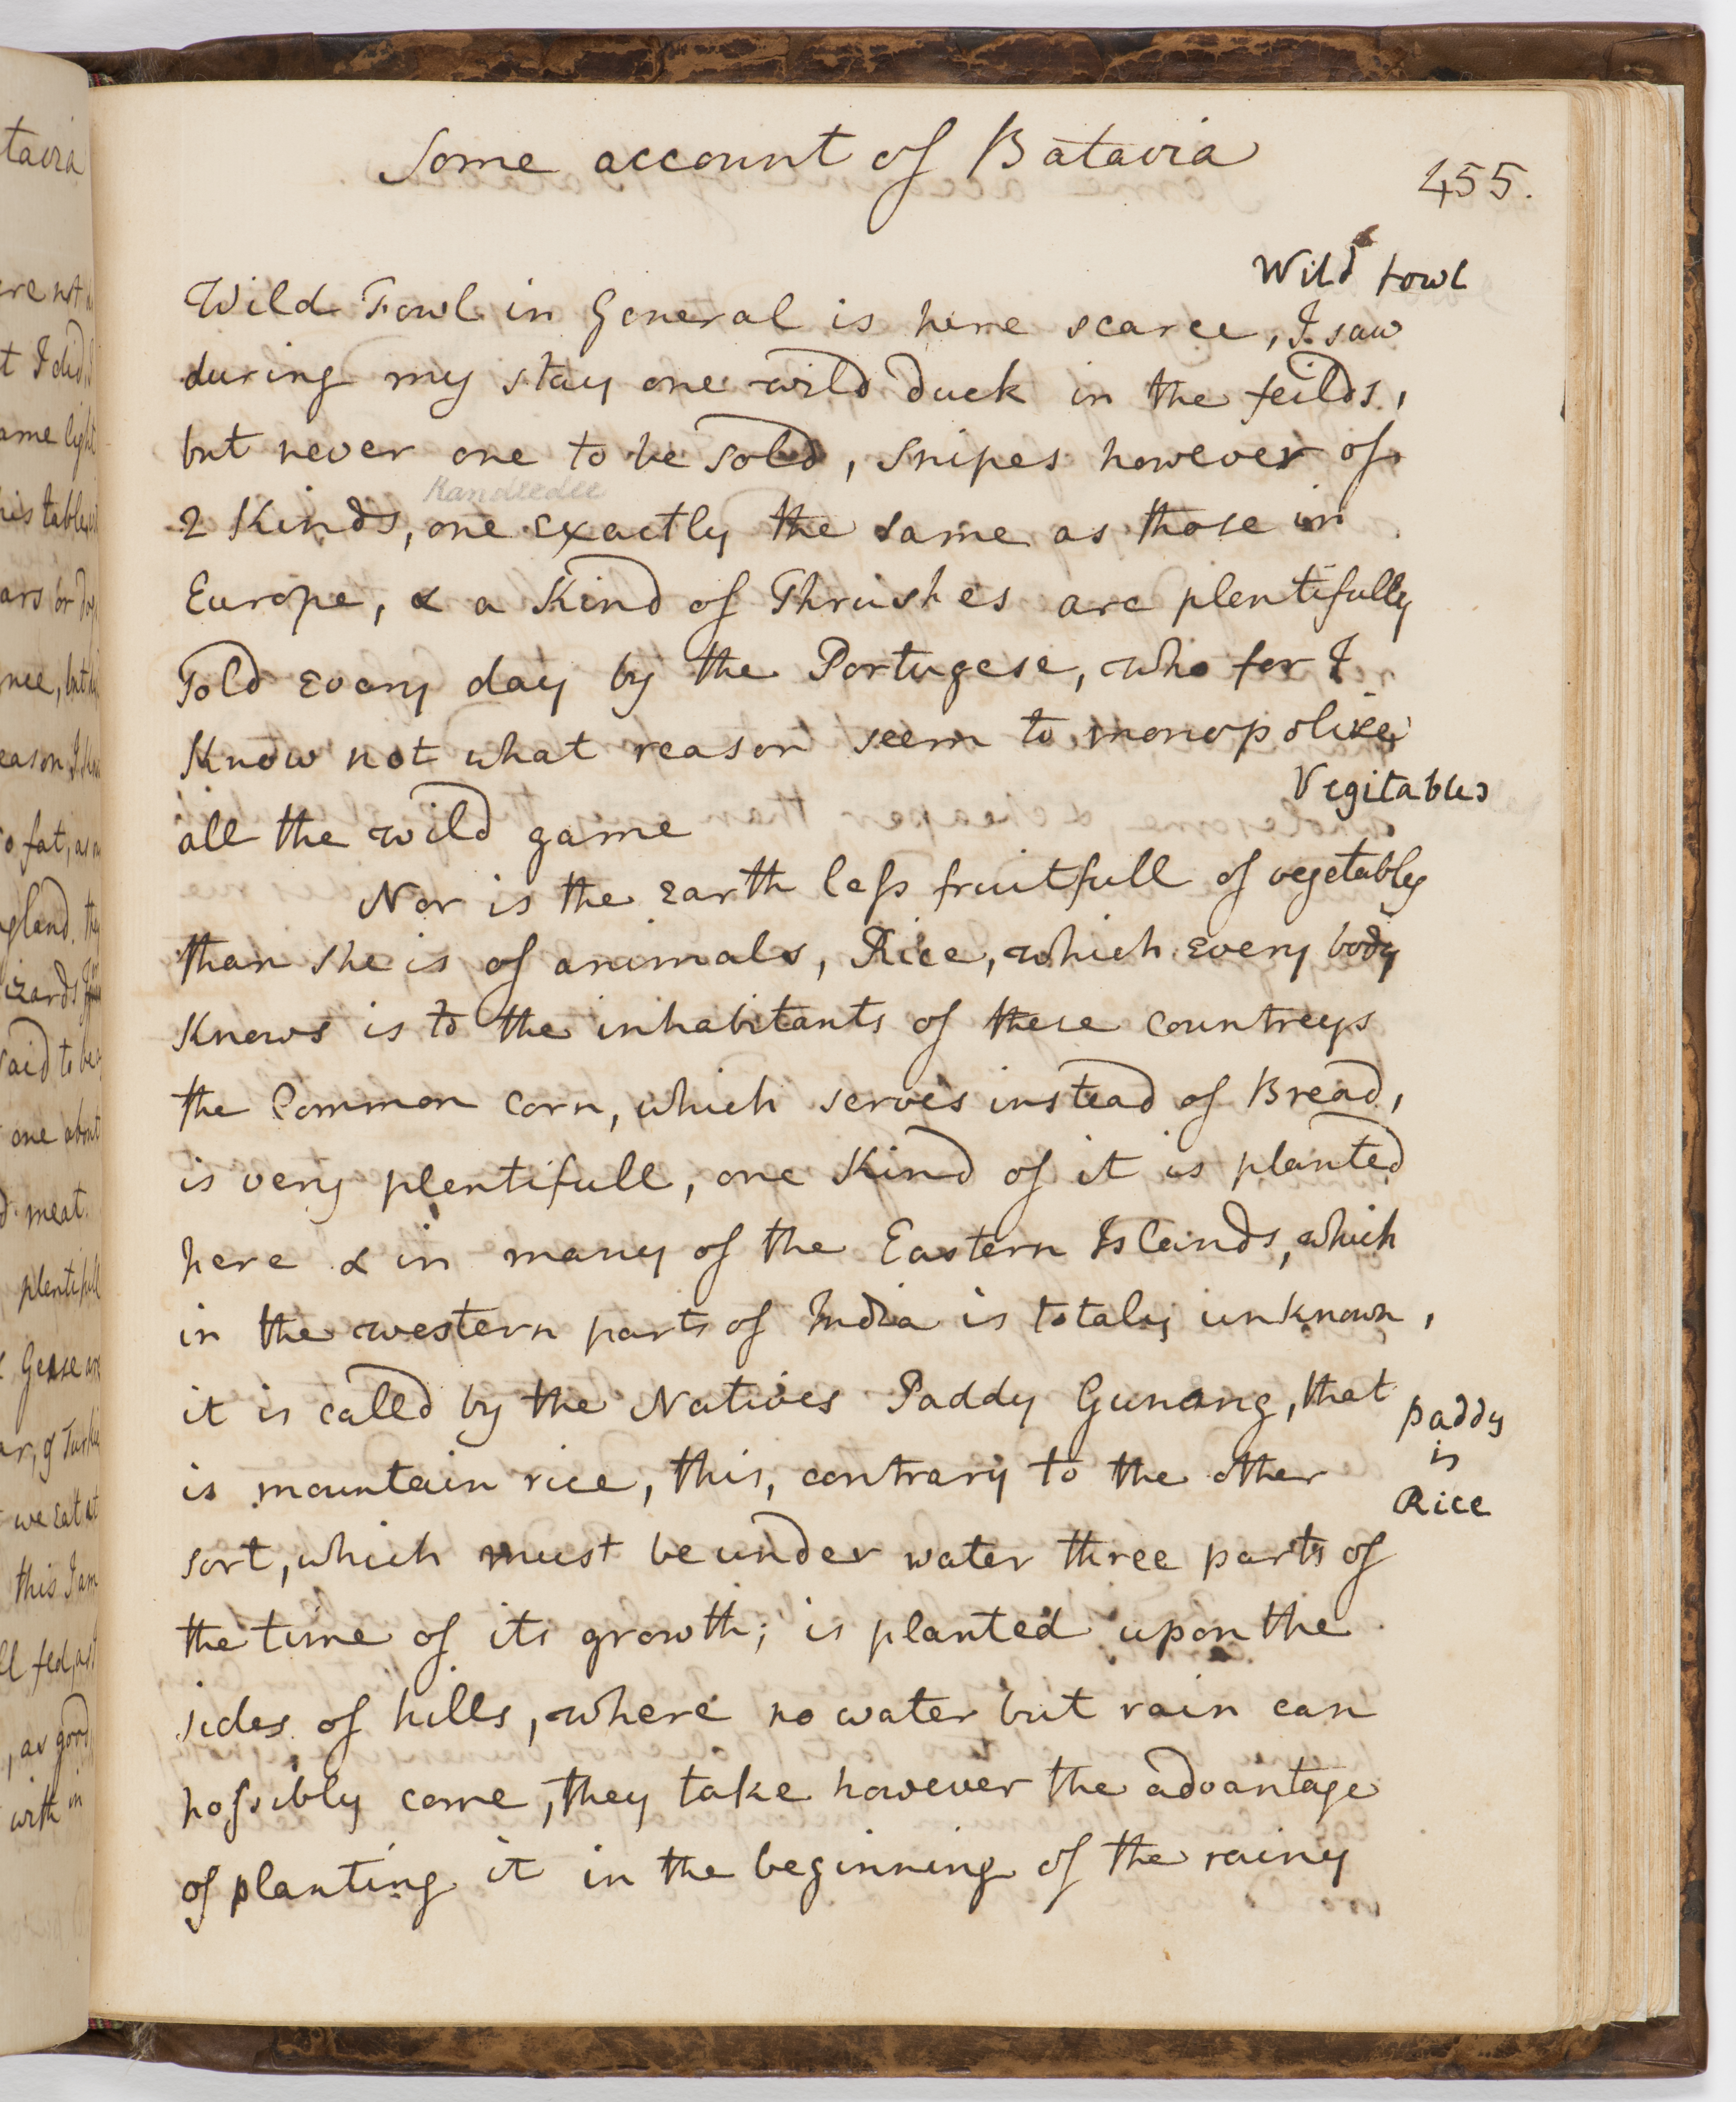 Some account of Batavia
455.
Wild Fowl
Wild Fowl in General is here scarce, I saw
during my stay one wild duck in the feilds,
but never one to be sold, snipes however of
Kandeedee
2 Kinds, one exactly the same as those in
Europe, & a Kind of Thrushes are plentifully
Sold every day by the Portugese, who for I
Know not what reason seem to monopolize
Vegitables
all the wild game
Nor is the earth less fruitfull of vegetables
than she is of animals, Rice, which every body
Knows is to the inhabitants of these countreys
the Common corn, which serves instead of Bread,
is very plentifull, one Kind of it is planted
here & in many of the Eastern Islands, which
in the western parts of India is totaly unknown,
it is called by the Natives Paddy Gunang, that
paddy
is
Rice
is mountain rice, this, contrary to the other
sort, which must be under water three parts of
the time of its growth; is planted upon the
sides of hills, where no water but rain can
possibly come, they take however the advantage
of planting it in the beginning of the rainy